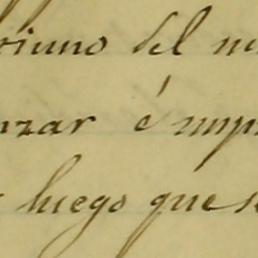 riuno del nu
nzar é imp
luego que s